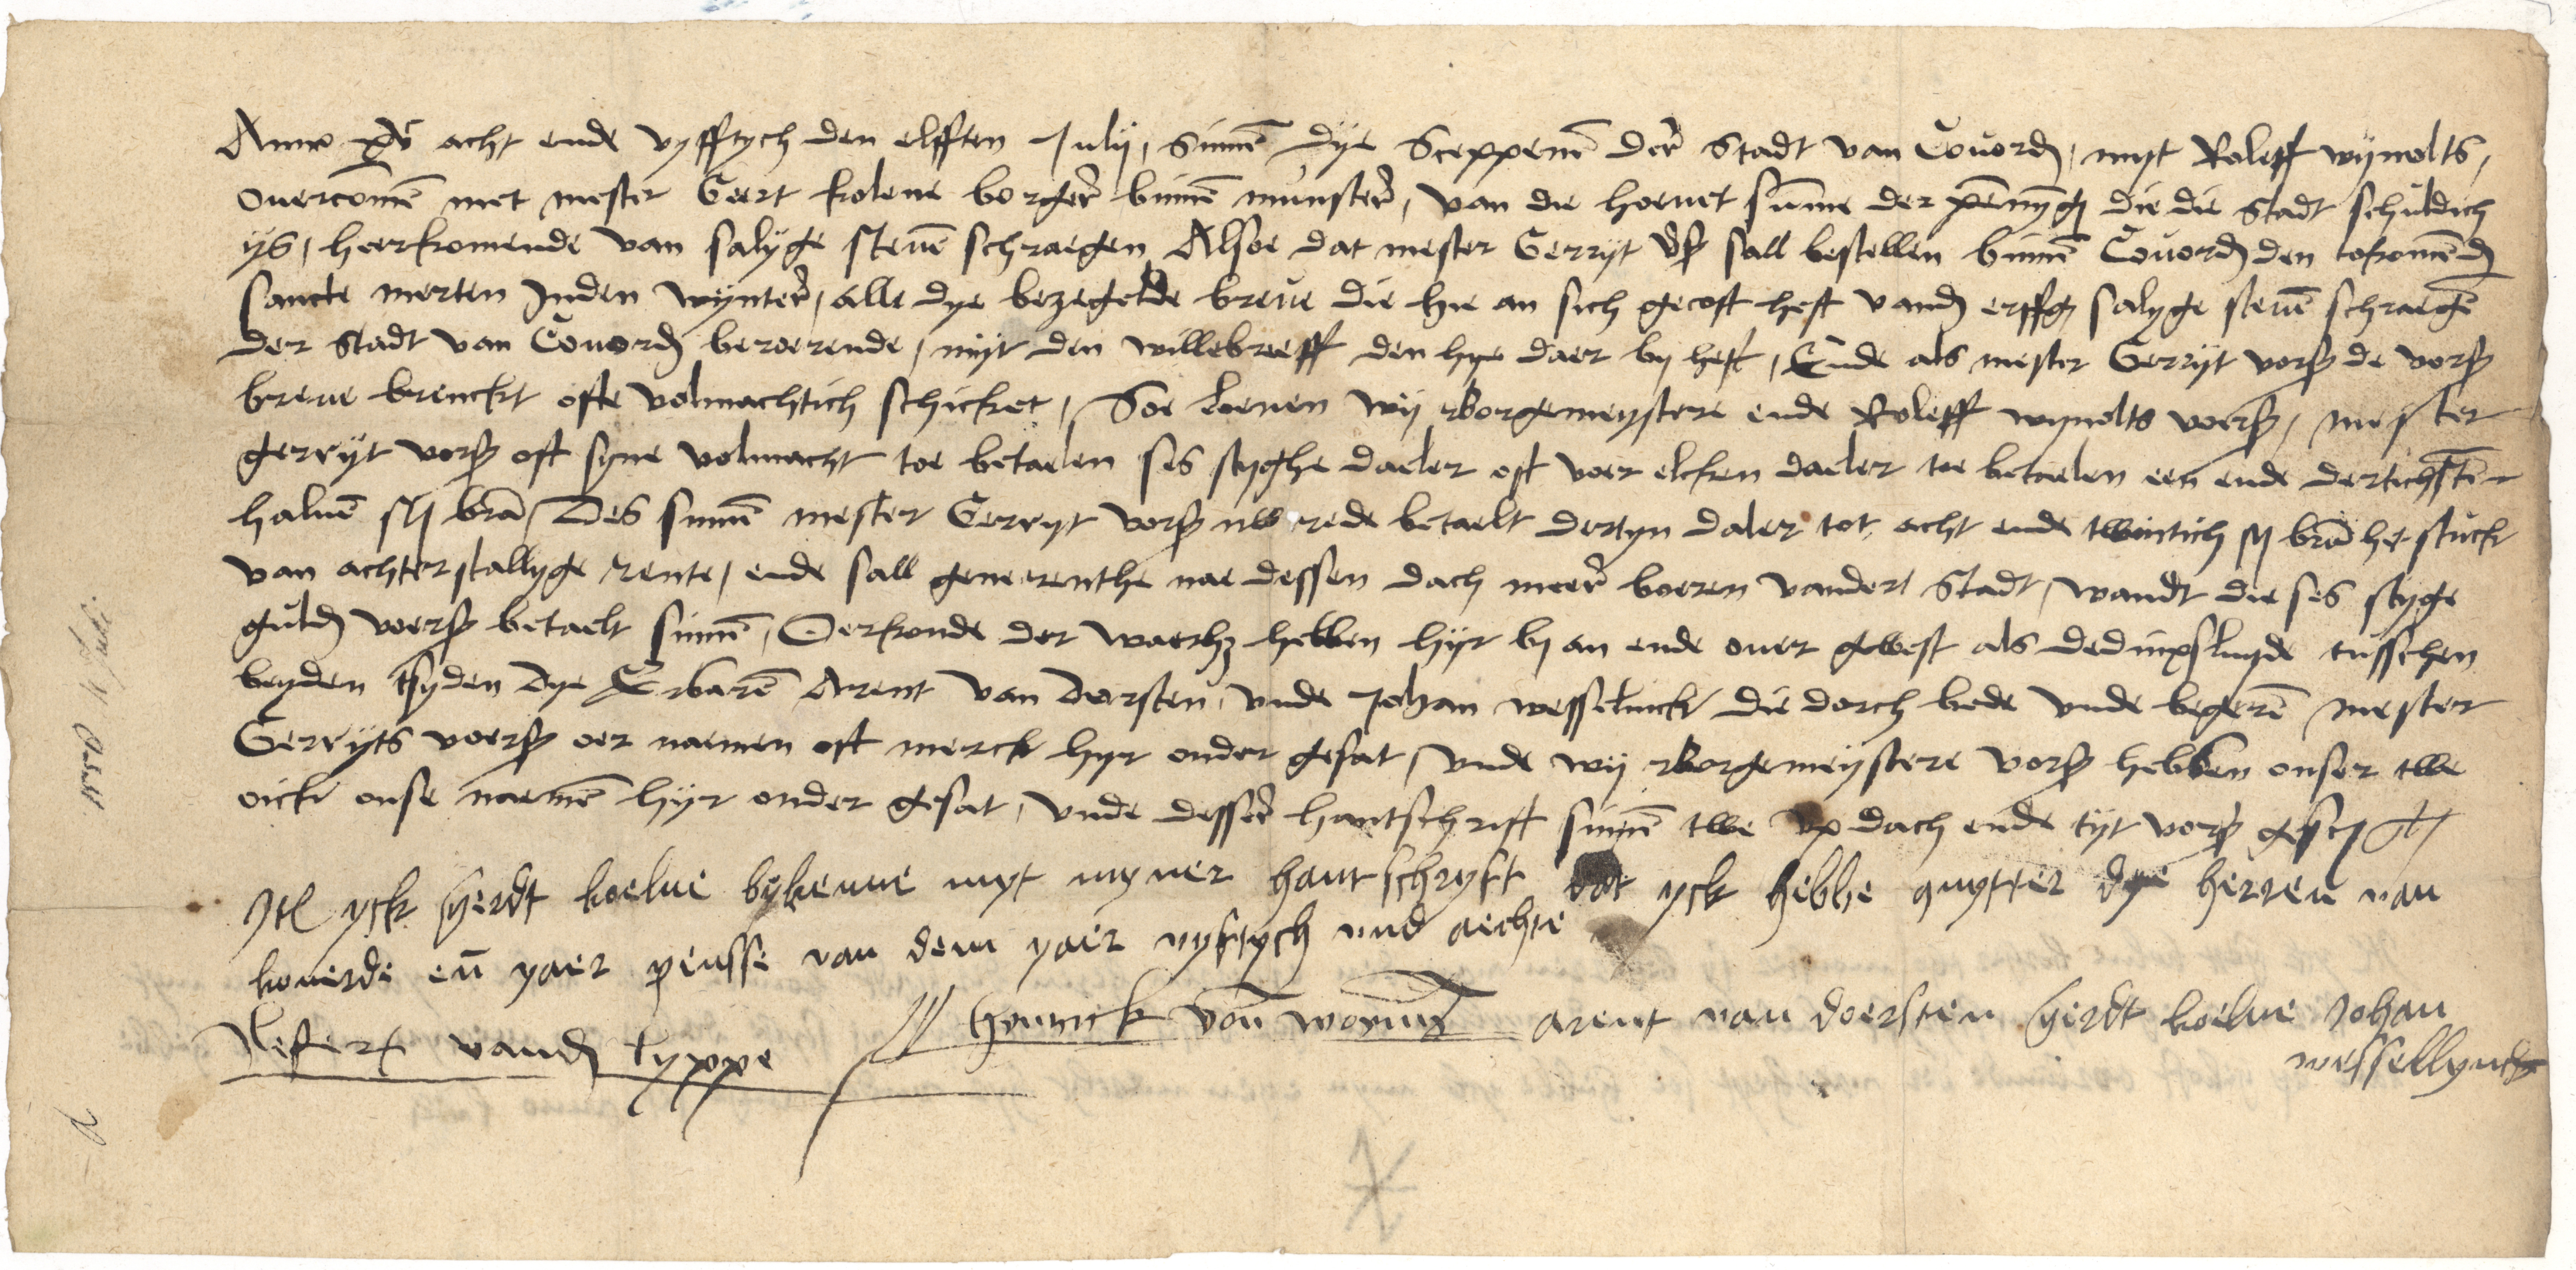 Anno xvc acht ende vyfftych den elfften Julij, sinnen dye Sceppenen der stadt van Couord, myt Roleff wynolts,
ouercomen met mester Geert kolene borger binnen munster, van die hoeuet summe der penny͞g die die stadt schuldich
ys, heerkomende van salyge steuen schraegen Alsoe dat mester Gerryt vors sall bestellen binnen Couord den tokomend
sancte merten Jnden wynter, alle dye bezegelde breue die hie an sich gecoft heft vand erffg salyge steuen schraegen
der stadt van Couord beroerende, myt den willebreeff den hye daer by heft, Ende als mester Gerryt vors de vors
breue brenckt ofte volmachtich schicket, Soe loeuen wij Borgemeystere ende Roleff wynolts voers, mester
gerryt vors oft syne volmacht toe betaelen ses styghe daeler oft voer elcken daeler toe betaelen een ende dertichsten
haluen st bra, Des sinnen mester Gerryt vors nw rede betaelt dertyn daler tot acht ende twintich st bra het stuck
van achterstallyge rente, ende sall geneerenthe nae dessen dach meer boeren vander stadt, wandt die ses styge
guld voers betaelt sinnen, Oerkonde der waerh hebben hyr by an ende ouer gewest als dedinxsluyde tusschen
beyden tsyden dye Erbaren Arent van dorsten, vnde Johan wesselinck die dorch bede vnde begeren mester
Gerryts voers oer naemen oft merck hyr onder gesat, vnde wij Borgemeystere vors hebben onser twe
oick onse naemen hyr onder gesat, vnde desser hantschrift sinnen twe vp dach ende tyt vors gescr
Jtem yck Gerdt koelne bykenne myt myner hantschryft dat yck hebbe quytter dye herren van
kouerde en yaer pensse van dem yaer vyftych vnd aechte
Refert vand Lyppe Hynrick von arent van doersten Gerdt koelne Johan
wessellynck